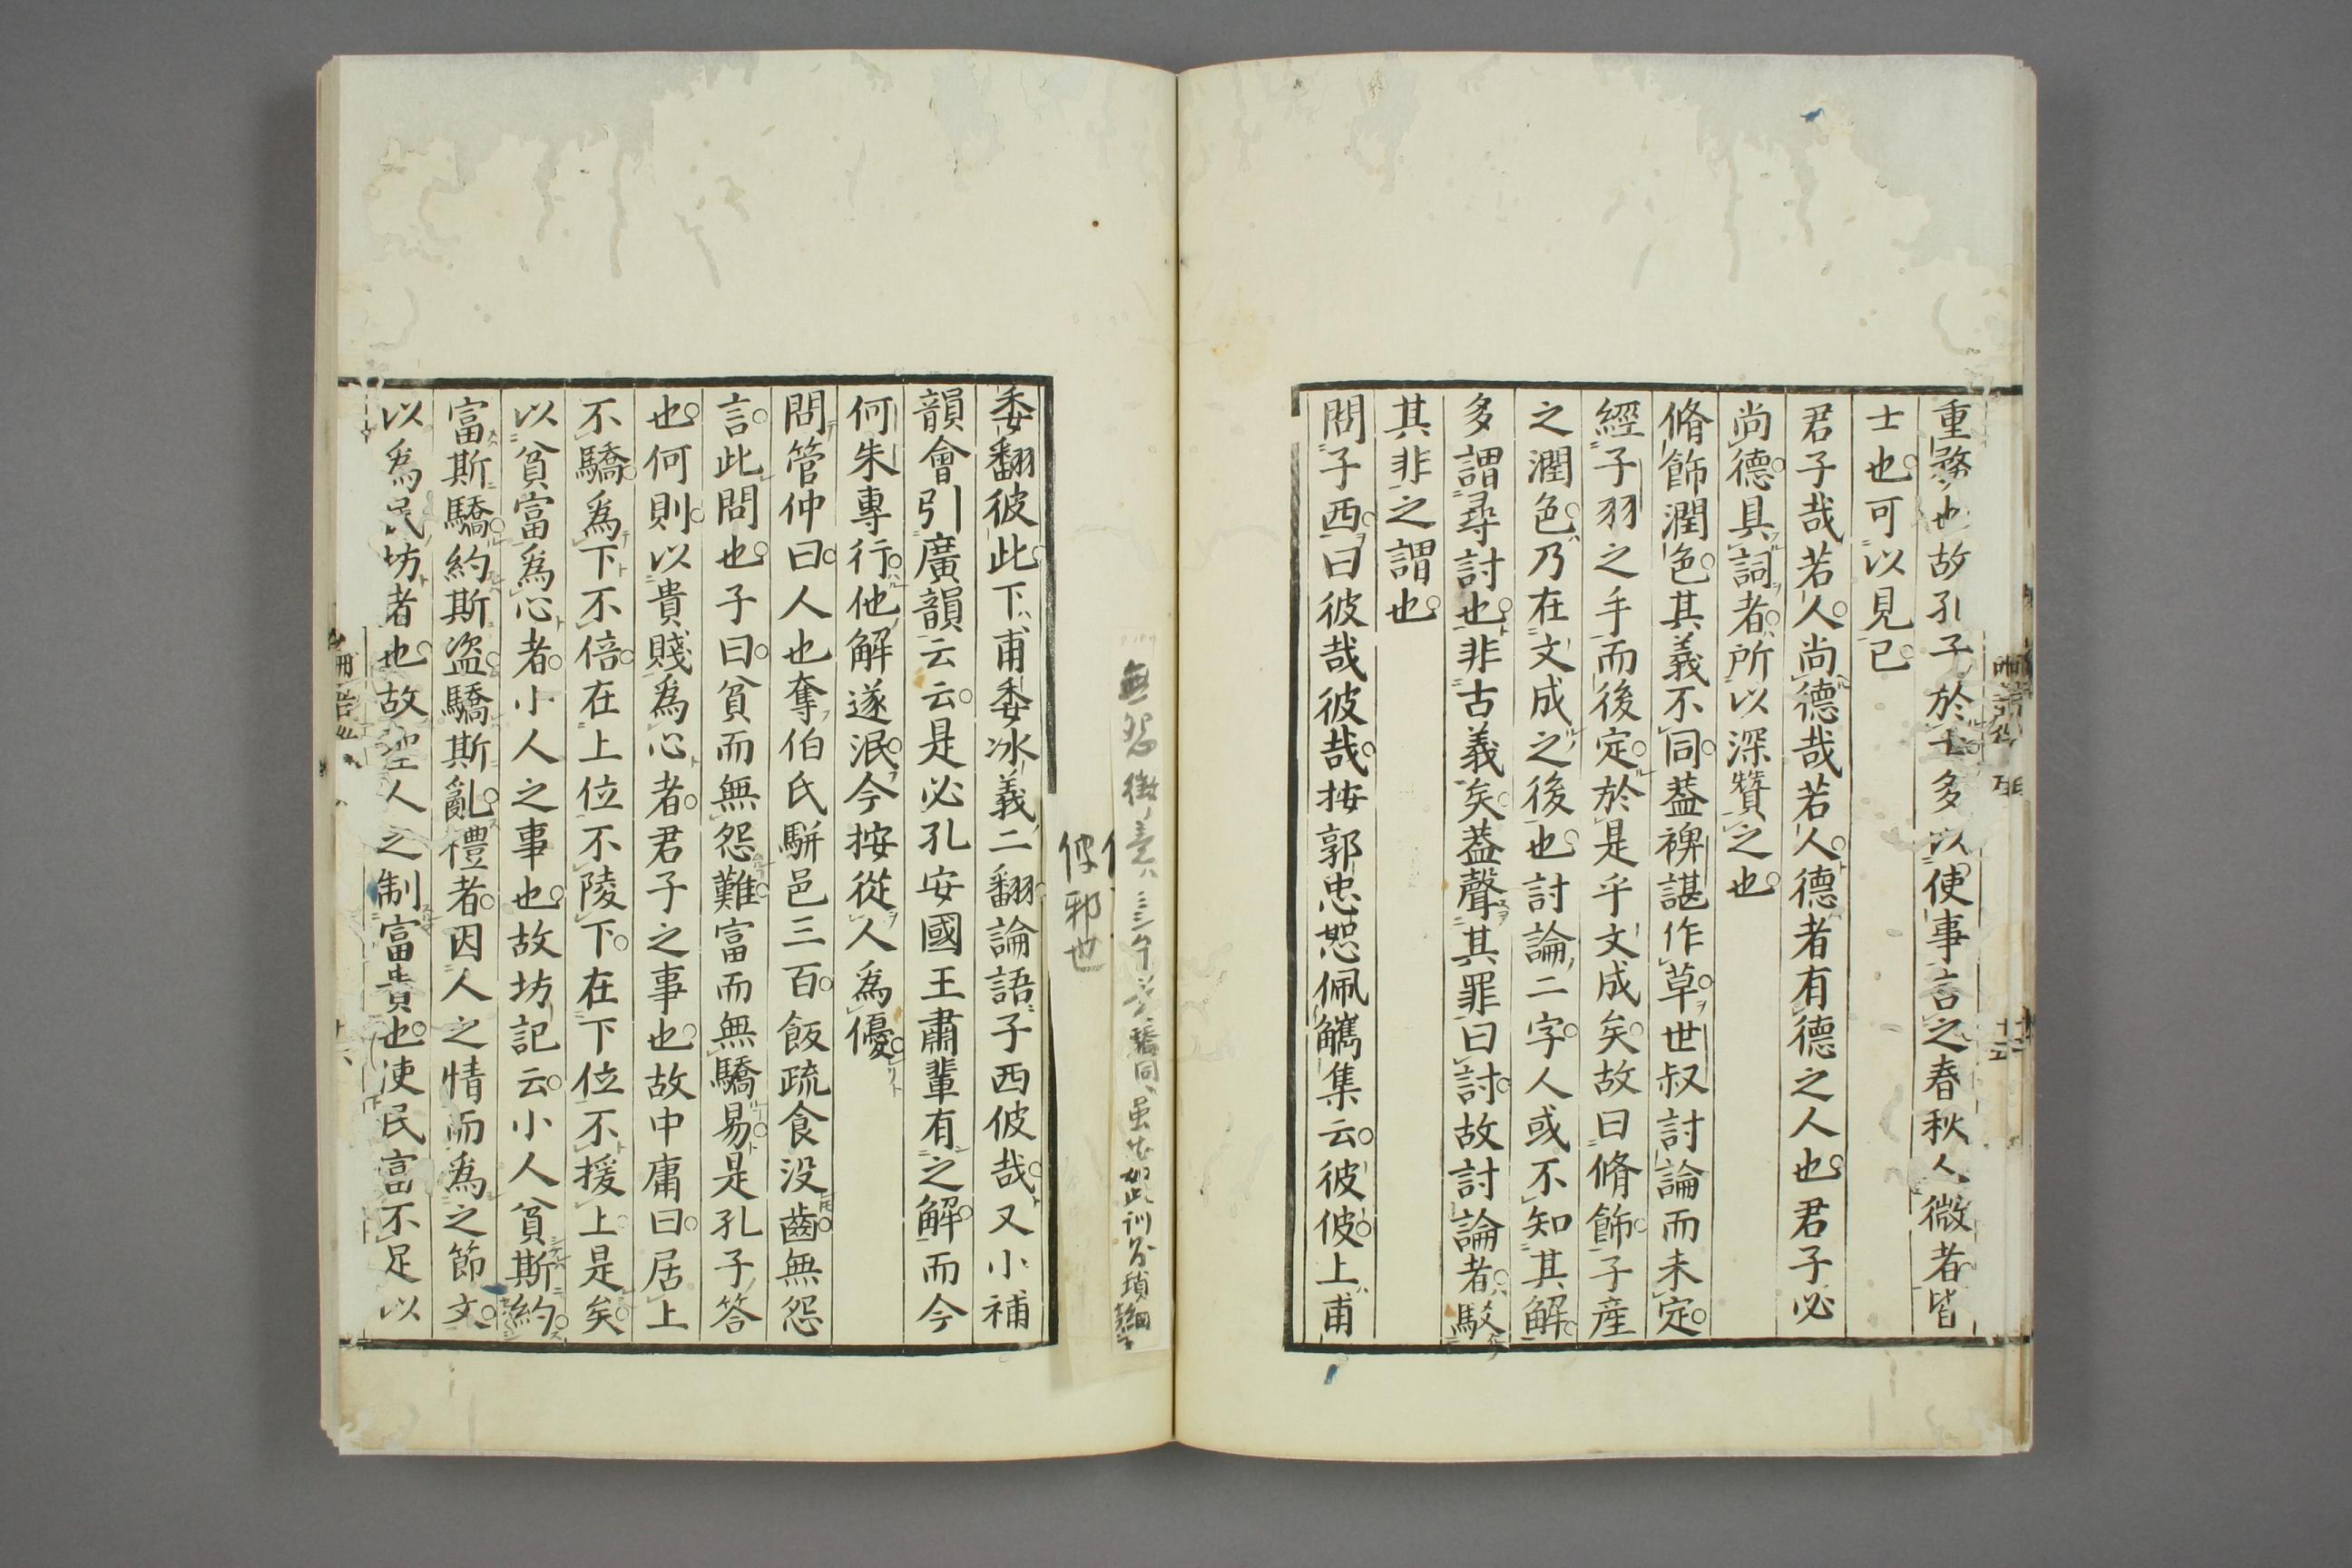 重務也故孔子於士多以使事言之春秋人微者皆
士也可以見已
君子哉若人尚德哉若人德者有德之人也君子必
尚德具詞者所以深贊之也
脩飾潤色其義不同葢裨諶作草世叔討論而未定
經子羽之手而後定於是乎文成矣故曰脩飾子產
之潤色乃在文成之後也討論二字人或不知其解
多謂尋討也非古義矣葢聲其罪曰討故討論者駁
其非之謂也
問子西曰彼哉彼哉按郭忠恕佩觿集云彼彼上甫
委翻彼此下甫委冰義二翻論語子西彼哉又小補
韻會引廣韻云云是必孔安國王肅輩有之解而今
何朱專行他解遂泯今按從人爲優
問管仲曰人也奪伯氏駢邑三百飯疏食没齒無怨
言此問也子曰貧而無怨難富而無驕易是孔子答
也何則以貴賤爲心者君子之事也故中庸曰居上
不驕爲下不倍在上位不陵下在下位不援上是矣
以貧富爲心者小人之事也故坊記云小人貧斯約
富斯驕約斯盜驕斯亂禮者因人之情而爲之節文
以爲民坊者也故聖人之制富貴也使民富不足以
佊邪也